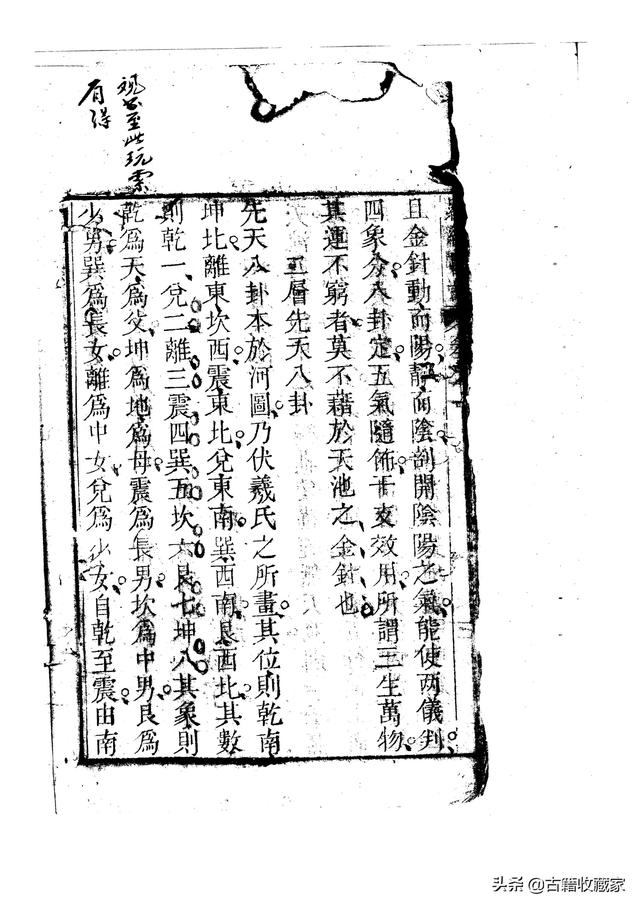 且金針動而陽靜而陰剖開陰陽之氣能使两儀判
四象分八卦定五氣隨佈干支效用所謂三生萬物
其運不窮者莫不藉於天池之金針也
二層先天八卦
先天八卦本於河圖乃伏羲氏之所畫其位則乾南
坤北離東坎西震東北兌東南巽西南艮西北其數
則乾一兌二離三震四巽五坎六艮七坤八其象則
乾爲天爲父坤爲地爲母震爲長男坎爲中男艮爲
少男巽爲長女離爲中女兌爲少女自乾至震由南
觀至此玩索
有得
头条 @古籍收藏家